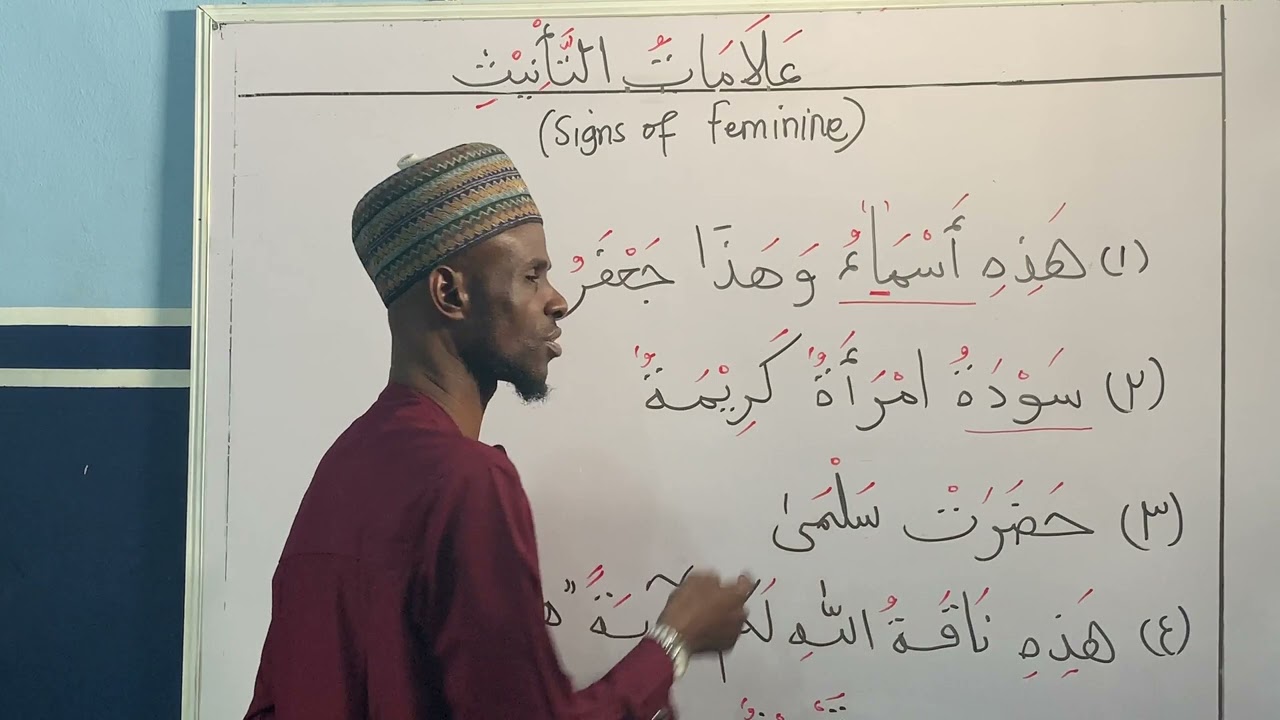 عَلَامَاتُ التَّأْنِيْثِ
(Signs of feminine)
(١) هَذِهِ أَسْمَاءُ وَهَذَا جَعْفَرُ
(٢) سَوْدَةُ امْرَأَةٌ كَرِيْمَةٌ
(٣) حَضَرَتْ سَلْمَىٰ
(٤) هَذِهِ نَاقَةُ اللّٰهِ